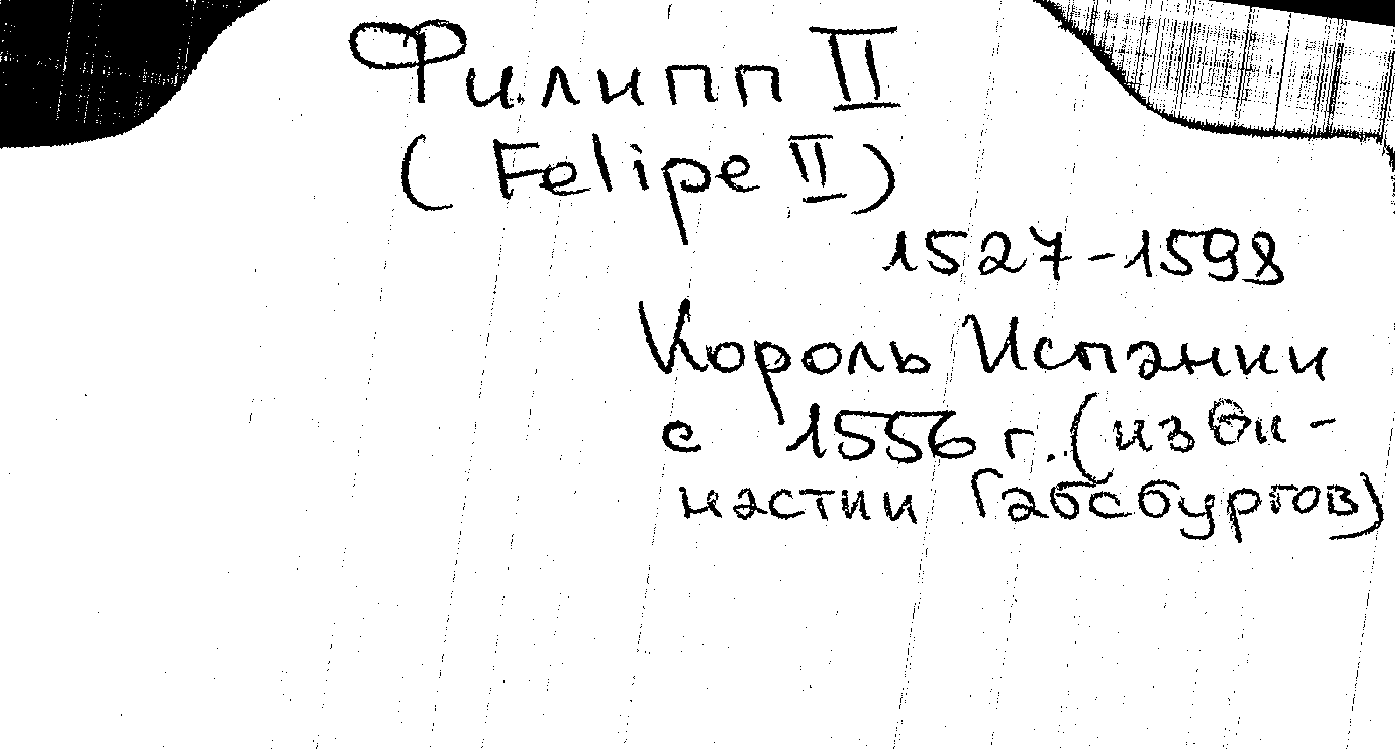 Филипп II
(Felipe II)
1527-1598
Король Испании
с 1556 г. (из ди-
настии Габсбургов)